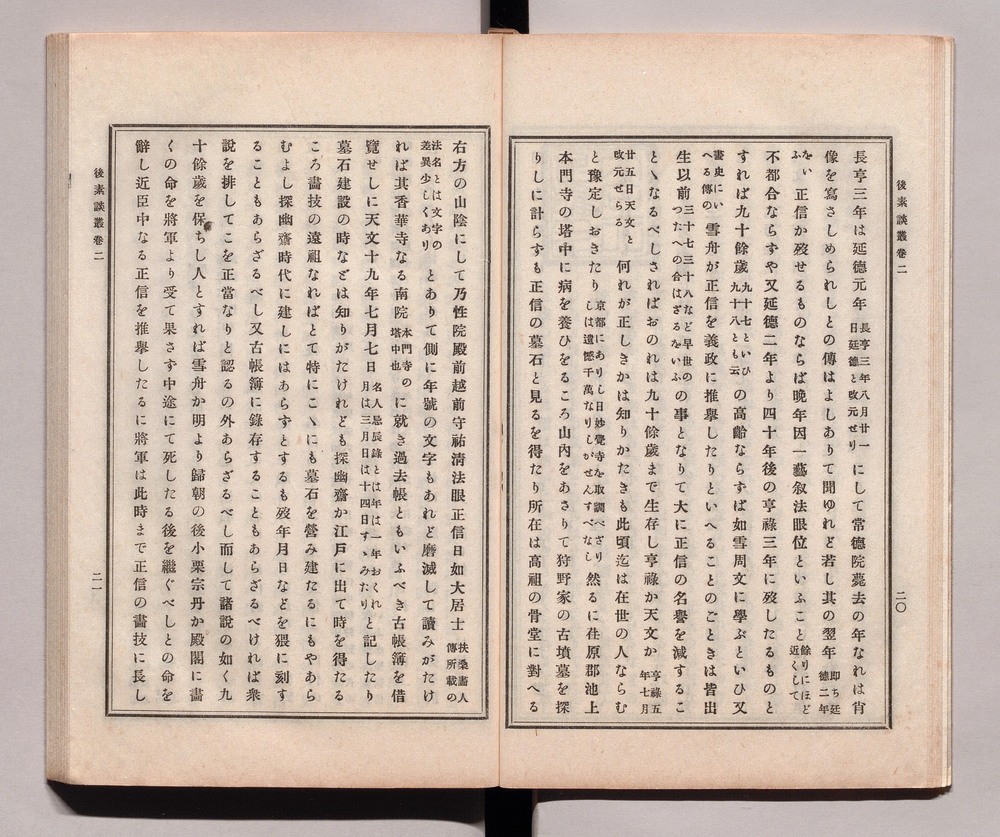 後素談叢卷二
二〇
長亨三年は延德元年長亨三年八月廿一日延德と改元せりにして常德院薨去の年なれは肖
像を寫さしめられしとの傳はよしありて聞ゆれど若し其の翌年即ち延德二年
をいふ正信か歿せるものならば晩年因一藝叙法眼位といふこと餘りにほど近くして
不都合ならすや又延德二年より四十年後の亨祿三年に歿したるものと
すれば九十餘歲九十七といひ九十八とも云の高齡ならずば如雪周文に學ぶといひ又
畫史にいへる傳の雪舟が正信を義政に推擧したりといへることのごときは皆出
生以前三十七三十八など早世のつたへの合はざるをいふの事となりて大に正信の名譽を減するこ
とゝなるべしさればおのれは九十餘歲まで生存し亨祿か天文か亨祿五年七月
廿五日天文と改元せらる何れが正しきかは知りかたきも此頃迄は在世の人ならむ
と豫定しおきたり京都にありし日妙覺寺を取調べざりしは遺憾千萬なりしがせんすべなし然るに荏原郡池上
本門寺の塔中に病を養ひをるころ山內をあさりて狩野家の古墳墓を探
りしに計らずも正信の墓石と見るを得たり所在は高祖の骨堂に對へる
右方の山陰にして乃性院殿前越前守祐淸法眼正信日如大居士扶桑畵人傳所載の
法名とは文字の差異少しくありとありて側に年號の文字もあれど磨滅して讀みがたけ
れば其香華寺なる南院本門寺の塔中也に就き過去帳ともいふべき古帳簿を借
覽せしに天文十九年七月七日名人忌辰錄とは年は一年おくれ月は三月日は十四日すゝみたりと記したり
墓石建設の時などは知りがたけれども探幽齋か江戶に出て時を得たる
ころ畵技の遠祖なればとて特にこゝにも墓石を營み建たるにもやあら
むよし探幽齋時代に建しにはあらずとするも歿年月日などを猥に刻す
ることもあらざるべし又古帳簿に錄存することもあらざるべければ衆
說を排してこを正當なりと認るの外あらざるべし而して諸說の如く九
十餘歲を保ちし人とすれば雪舟か明より歸朝の後小栗宗丹か殿閣に畵
くの命を將軍より受て果さす中途にて死したる後を繼ぐべしとの命を
辭し近臣中なる正信を推擧したるに將軍は此時まで正信の畵技に長し
後素談叢卷二
二一